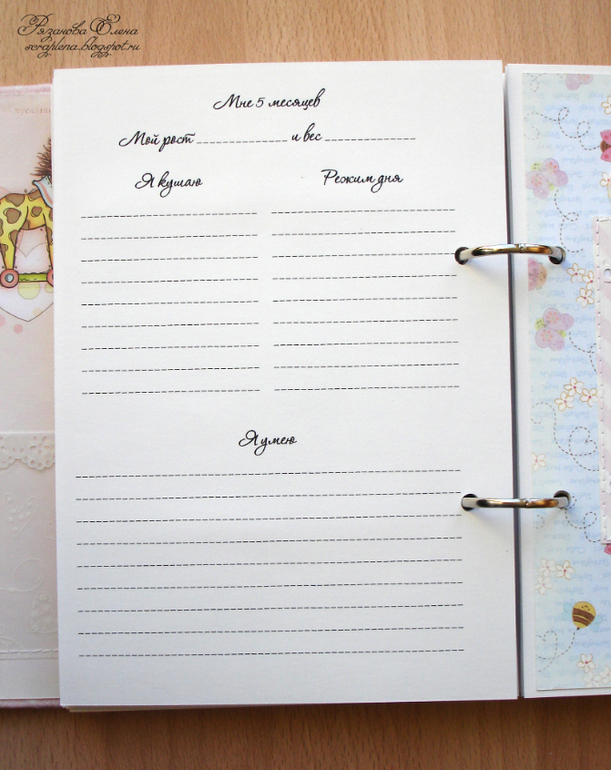 Рязанова Елена
scraplena.blogspot.ru
Мне 5 месяцев
Мой рост ______________ и вес ______________
Я кушаю Режим дня
Я умею